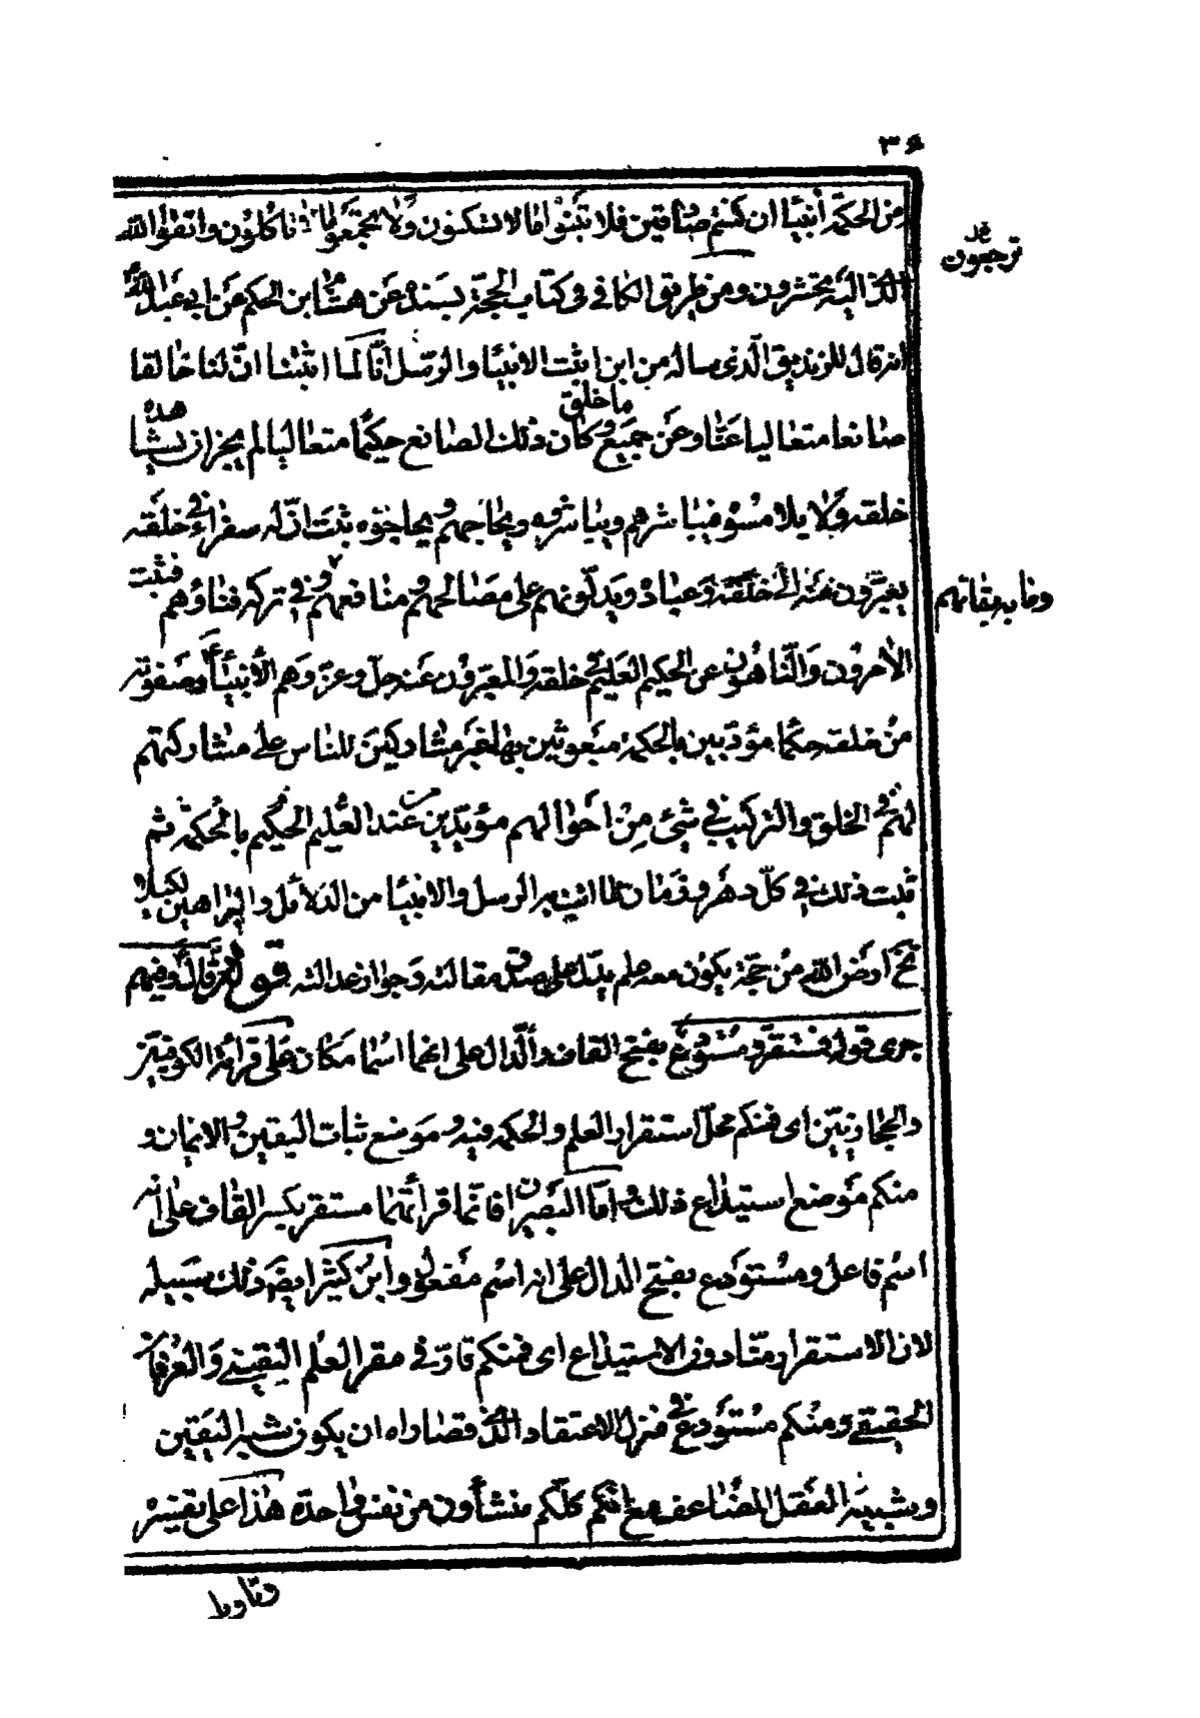 ٣٤
من الحكمة أنبياء ان كنتم صادقين فلا تبنوا ما لا تسكنون ولا تجمعوا ما لا تأكلون واتقوا الله
نخل ترجعون
الذي اليه تحشرون ومن طريق الكافي في كتاب الحجة بسنده عن هشام ابن الحكم عن ابي عبد الله
انه قال للزنديق الذي ساله من اين اثبت الانبياء والرسل انا لما اثبتنا ان لنا خالقا
صانعا متعاليا عنا وعن جميع ما خلق وكان ذلك الصانع حكيما متعاليا لم يجز ان يشاهده
خلقه ولا يلامسوه فيباشرهم ويباشروه ويحاجهم ويحاجوه ثبت ان له سفراء في خلقه
يعبرون عنه الى خلقه وعباده ويدلونهم على مصالحهم ومنافعهم وفي تركه فناؤهم فثبت
وما به بقائهم
الآمرون والناهون عن الحكيم العليم في خلقه والمعبرون عنه جل وعز وهم الأنبياء وصفوته
من خلقه حكماء مؤدبين بالحكمة مبعوثين بها غير مشاركين للناس على مشاركتهم
لهم في الخلق والتركيب في شيء من احوالهم مؤيدين عند الحكيم العليم بالحكمة ثم
ثبت ذلك في كل دهر وزمان لما اتيت به الرسل والانبياء من الدلائل والبراهين لكيلا
تخ ارض الله من حجة يكون معه علم يدل على صدق مقالته وجواز عدالته قوله
جرى قوله فمستقر ومستودع بفتح القاف والدال على انهما اسما مكان على قراءة الكوفيين
والحجازيين اي فمنكم محل استقرار العلم والحكمة فيه وموضع ثبات اليقين والايمان و
منكم موضع استيداع ذلك واما البصريان فانما قرائتهما مستقر بكسر القاف على انه
اسم فاعل ومستودع بفتح الدال على انه اسم مفعول وابن كثير ايضا ذلك سبيله
لان الاستقرار منا دون الاستيداع اي فمنكم قار في مقر العلم اليقيني والعرفان
الحقيقي ومنكم مستودع في منزل الاعتقاد الذي قصاراه ان يكون شبيه اليقين
وشبيه العقل المضاعف مع انكم كلكم منشأون من نفس واحدة هذا على تفسيره
وتاويل